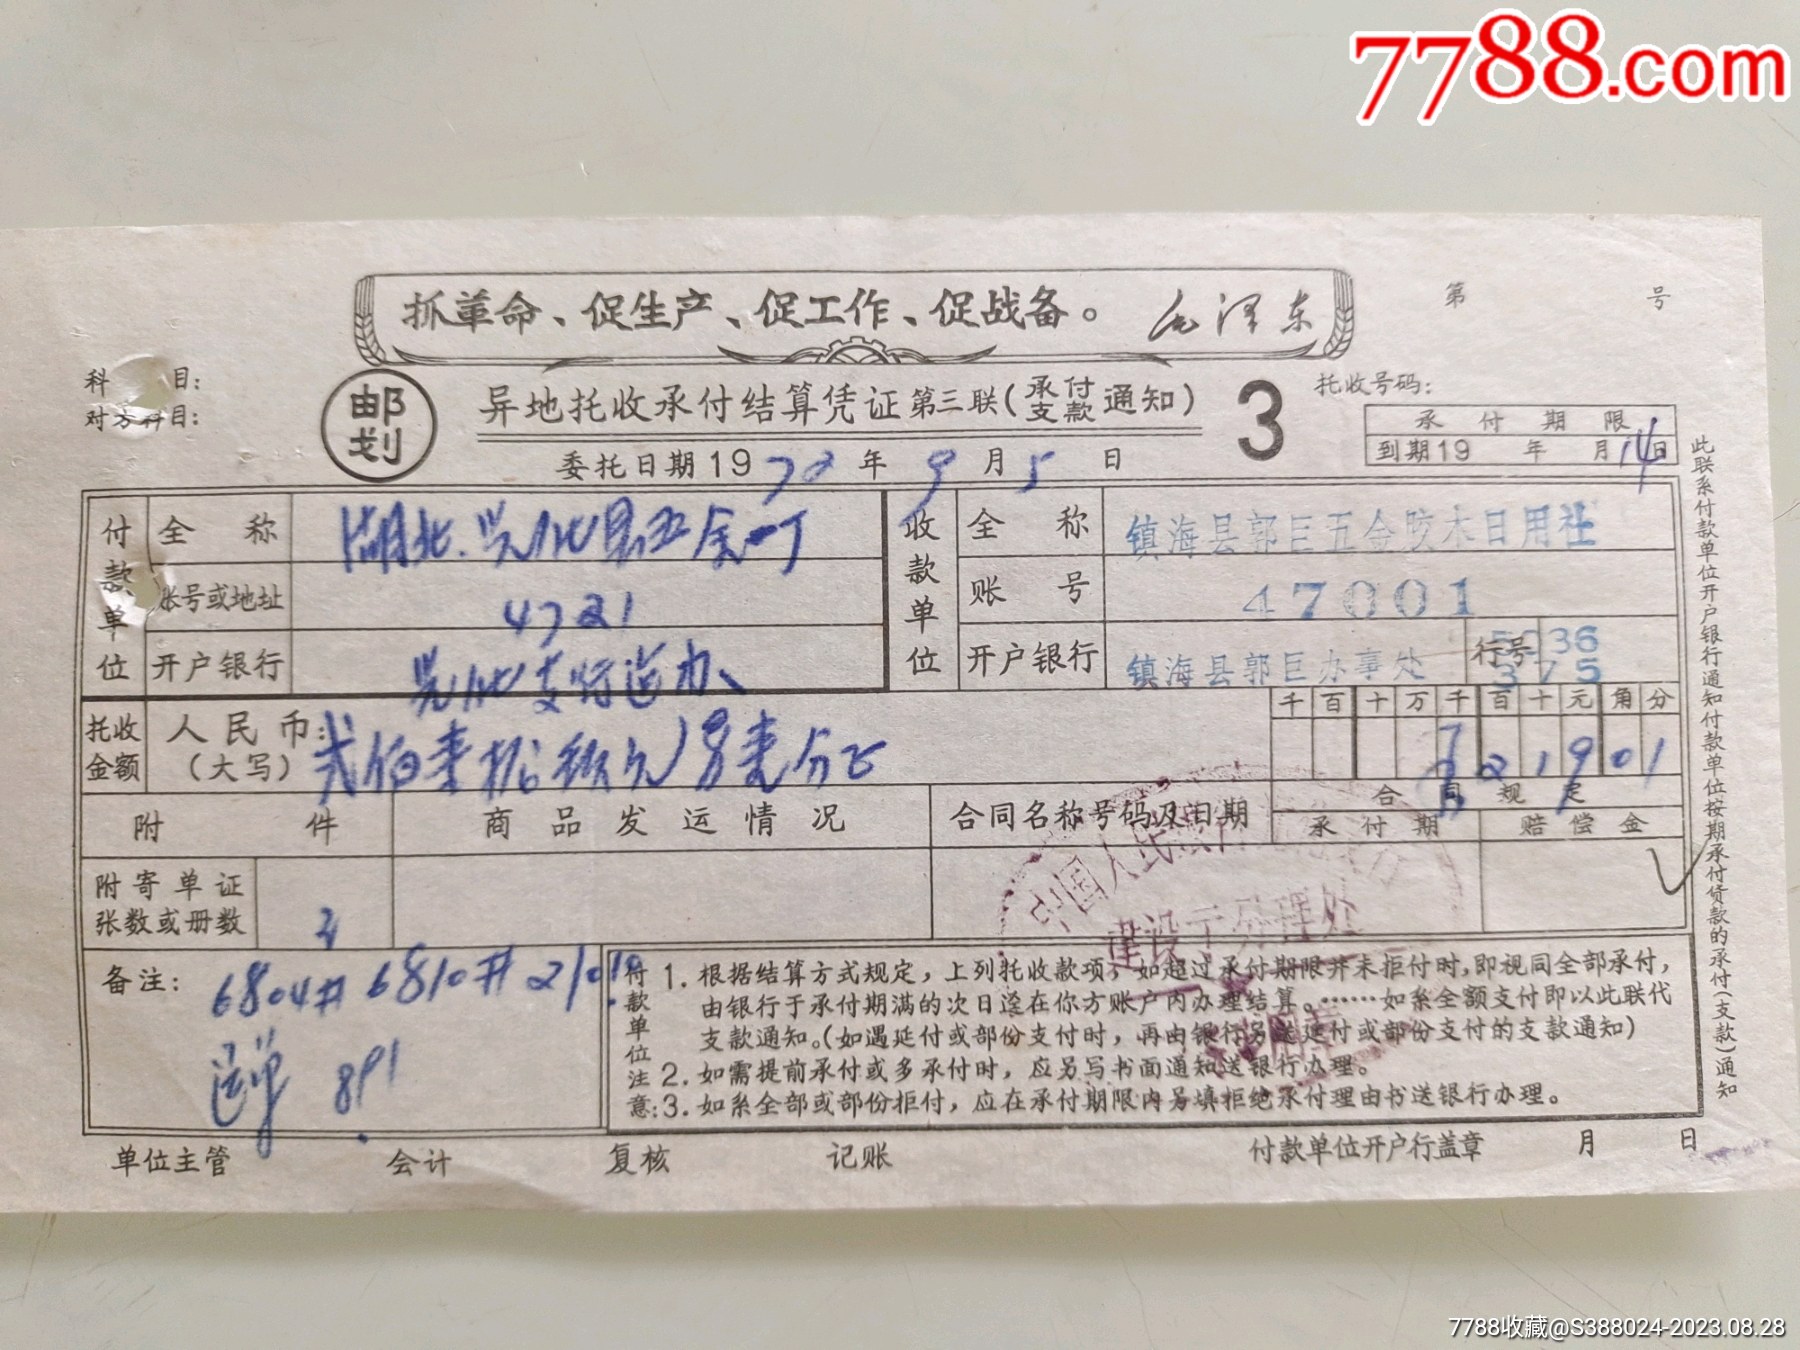 7788.com
抓革命、促生产、促工作、促战备。 毛泽东
第 号
科 目:
对方科目:
邮划
异地托收承付结算凭证第三联(承付支款通知)
3
托收号码:
承付期限
到期19 年 月14日
委托日期1972年9月5日
付款单位
全称
账号或地址 4721
开户银行
收款单位
全称 镇海县郭巨五金胶木日用社
账号 47001
开户银行 镇海县郭巨办事处 行号
托收金额
人民币:(大写)
千百十万千百十元角分
21901
附件
商品发运情况
合同名称号码及日期
合同规定
承付期
赔偿金
附寄单证张数或册数
备注: 6804# 6810#
891
付款单位注意:
1.根据结算方式规定,上列托收款项,如超过承付期限并未拒付时,即视同全部承付,
由银行于承付期满的次日迳在你方账户内办理结算。……如系全额支付即以此联代
支款通知。(如遇延付或部份支付时,再由银行另送延付或部份支付的支款通知)
2.如需提前承付或多承付时,应另写书面通知送银行办理。
3.如系全部或部份拒付,应在承付期限内另填拒绝承付理由书送银行办理。
此联系付款单位开户银行通知付款单位按期承付货款的承付(支款)通知
单位主管 会计 复核 记账 付款单位开户行盖章 月 日
7788收藏@S388024-2023.08.28